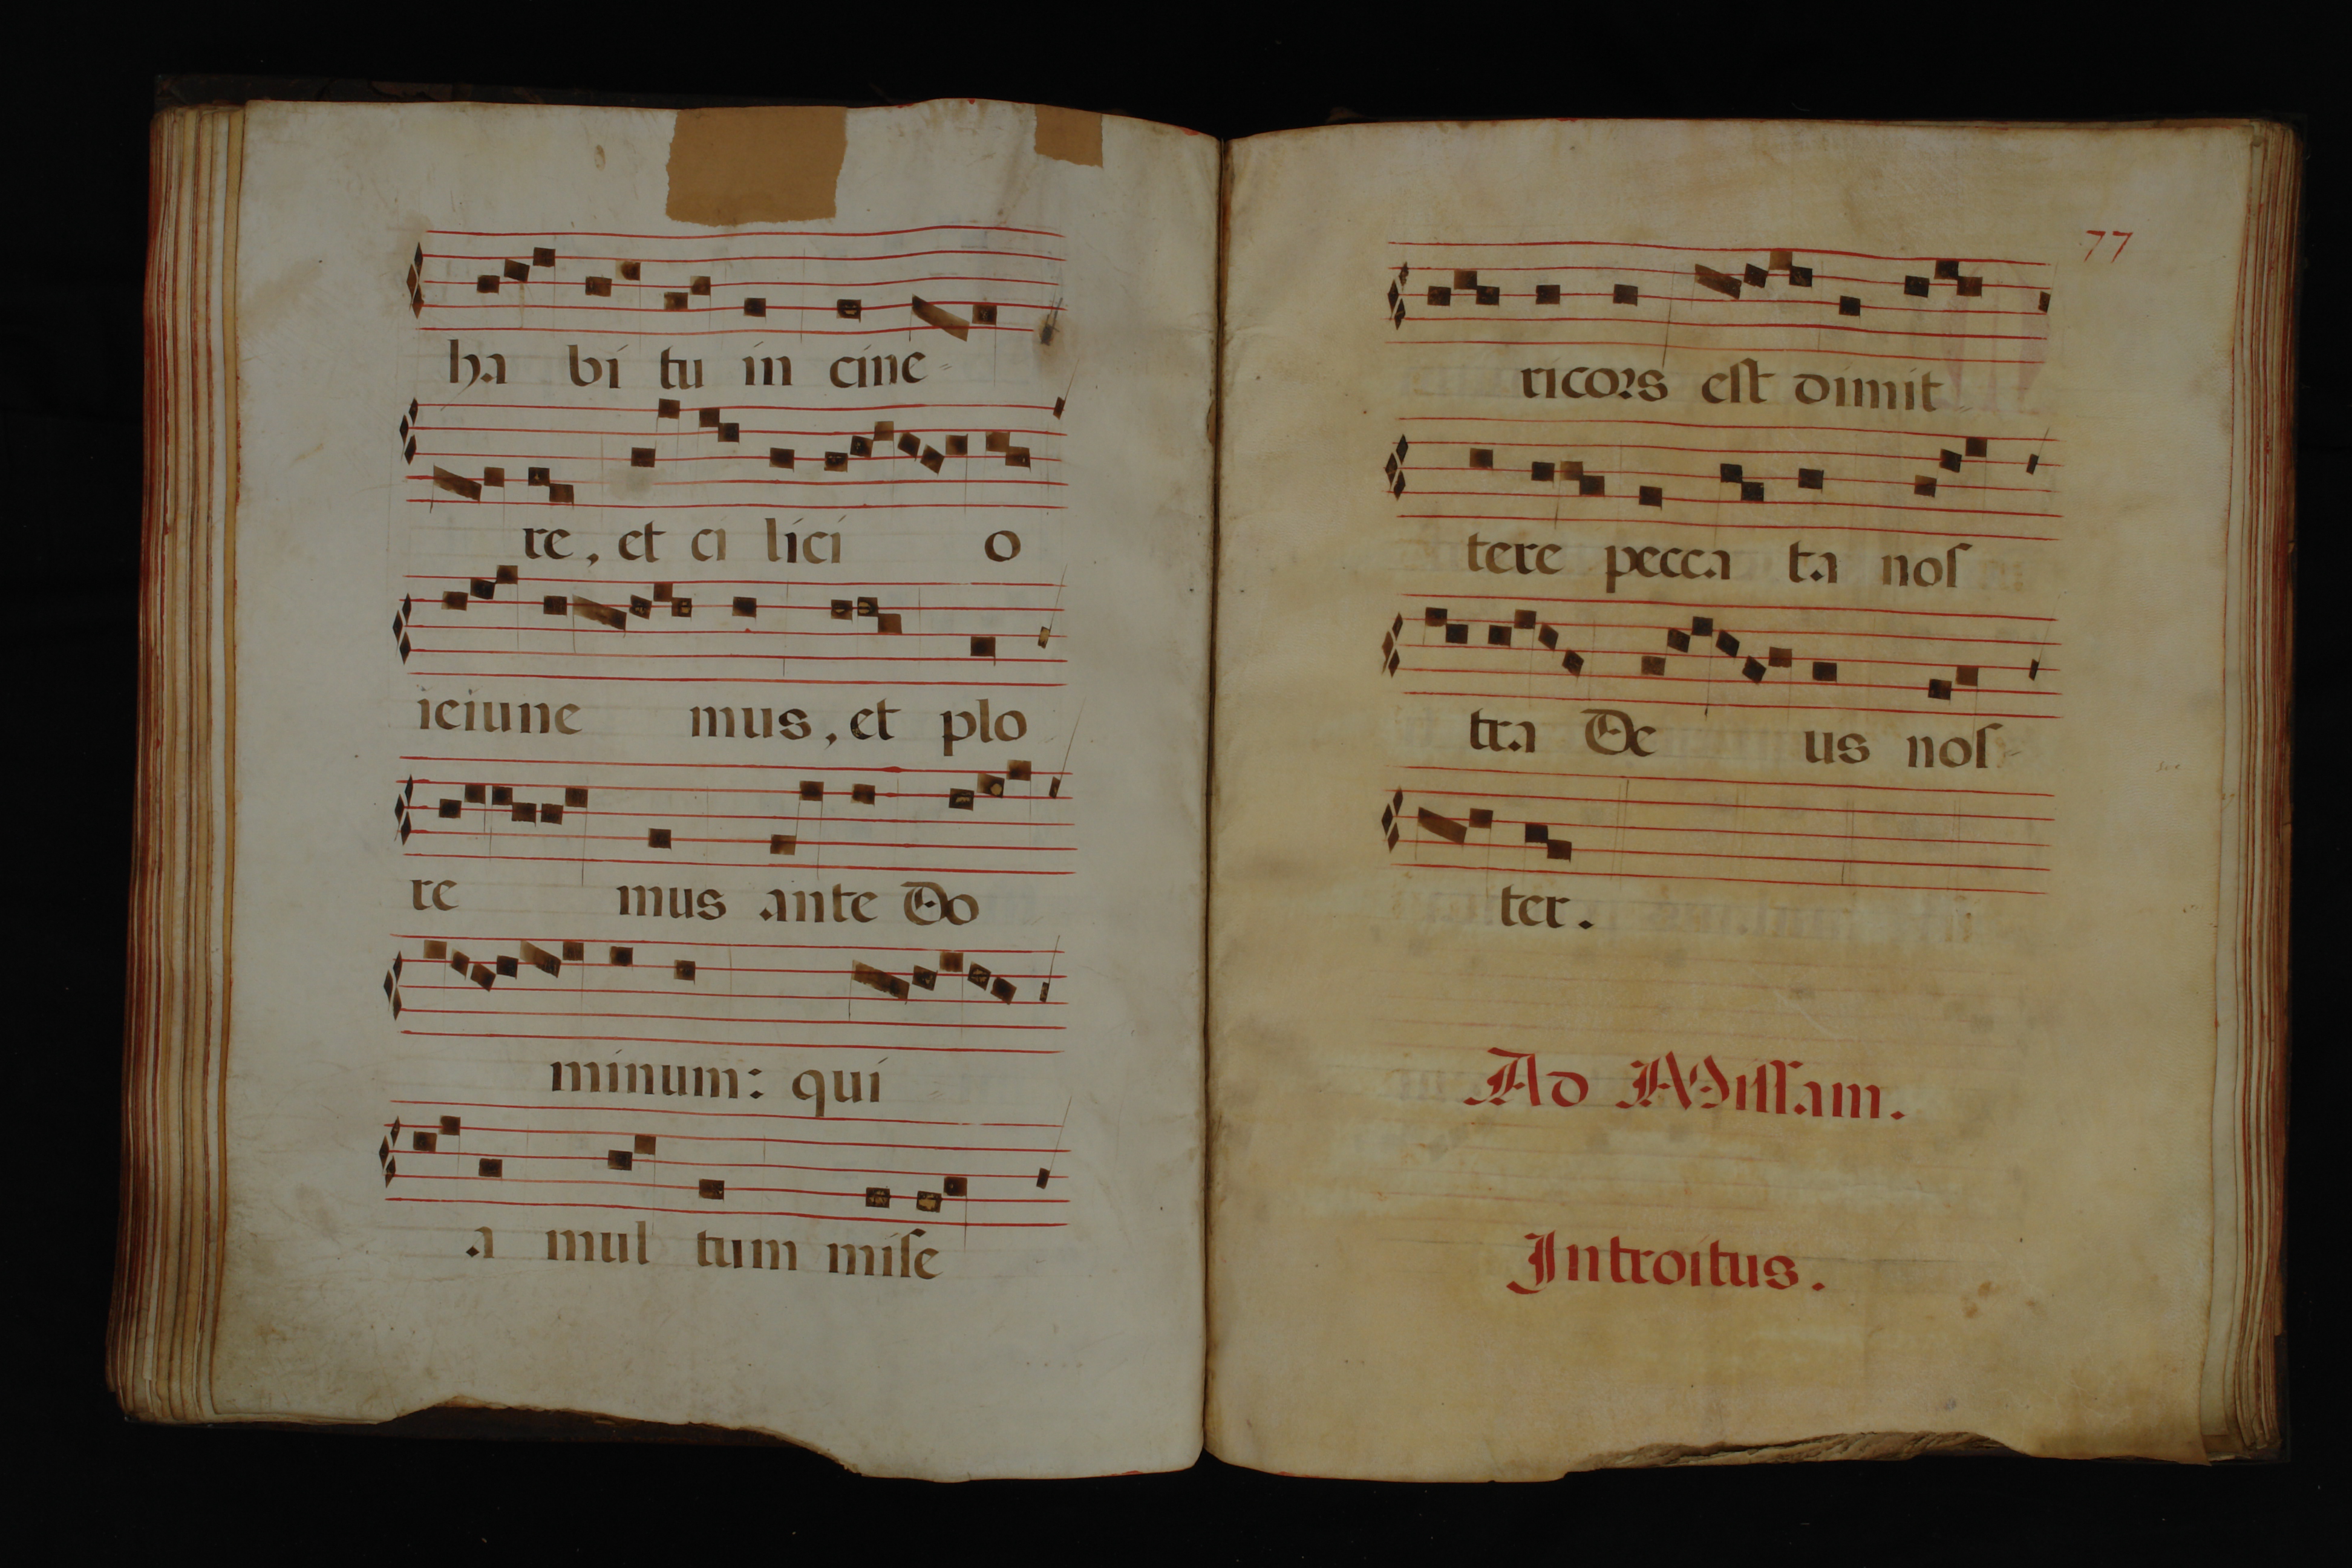 ha bi tu in cine-
re, et ci lici o
ieiune mus, et plo
re mus ante Do
minum: qui
a mul tum miſe
77
ricors eſt dimit
tere pecca ta noſ
tra De us noſ-
ter.
Ad Miſſam.
Introitus.